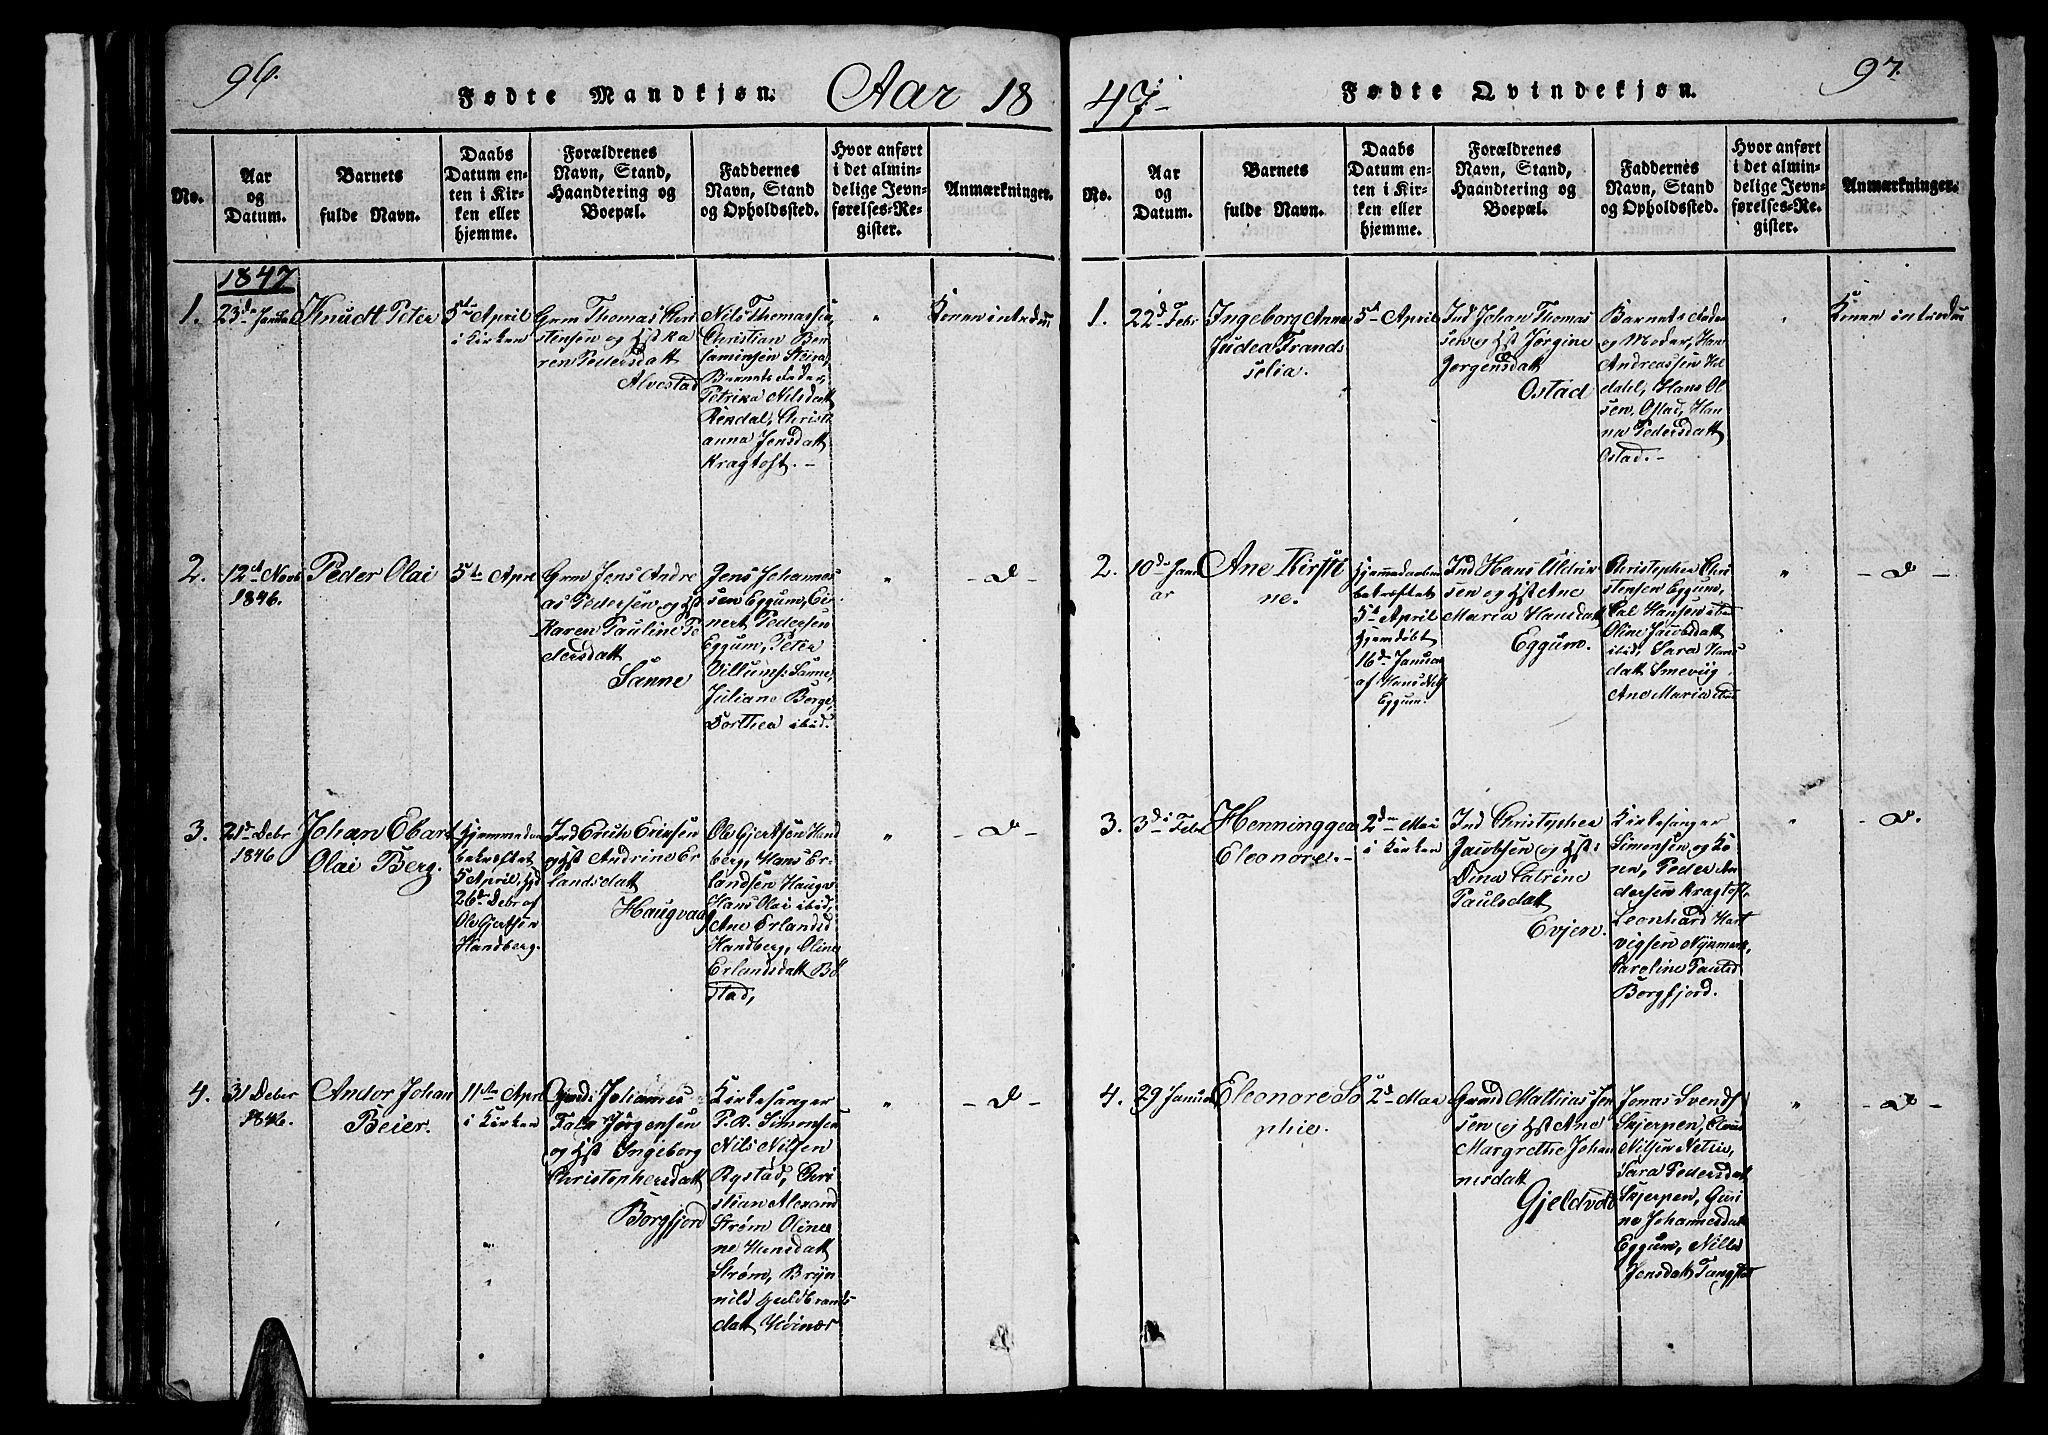 96.
Fødte Mandkjøn.
Aar 18
No.
Aar
og
Datum.
Barnets
fulde Navn.
Daabs
Datum en-
ten i Kir-
ken eller
hjemme.
Forældrenes
Navn, Stand,
Haandtering og
Boepæl.
Faddernes
Navn, Stand
og Opholdssted.
Hvor anført
i det almin-
delige Jevn-
førelses-Re-
gister.
Anmærkninger.
1847
1.
23d
Knudt Peter
5te April
i Kirken
Grm Thomas Chri
stensen og Hst Ka
ren Pedersdatt
Alvestad
Nils Thomassen
Christian Ben
jaminsen Steira,
Barnets Fader,
Petrika Nilsdatt
Rendal, Christi
anna Jensdatt
Kragtoft. -
"
Konen introdu
2.
12d Novb
1846.
Peder Olai
5te Apre
Grm Jens Andre
as Pedersen og Hst
Karen Pauline Pe
dersdatt
Sanne
Jens Johannes
sen Eggum, Ei-
nert Pedersen
Eggum, Peter
Villums: Sanne,
Juliane Borge,
Dorthea ibid.
"
- d -
3.
21d Debr
1846
Johan Ebart
Olai Berg.
Hjemmedaa
bekræftet
5 April, hjd
26de Debr af
Ole Gjertsen
Handberg.
Ind Erich Ericksen
og Hst Andrine Er
landsdatt
Haugvaag
Ole Gjertsen Hand
berg, Hans Er-
landsen Hauge
Hans Olai ibid,
Ane Erlandsd
Handberg, Oline
Erlandsdatt Bø
stad,
"
- d -
4.
31 Debr
1846.
Andor Johan
Beier.
11te Apri
i Kirken
Johannes
Falz Jørgensen
og Hst Ingeborg
Christophersdatt
Borgfjord
Kirkesanger
P. A. Simonsen
Nils Nilsen
Rystad, Chri
stian Alexand
Strøm Oline
ne Hansdatt
Strøm, Bryn
nild Guldbrands
datt Høinær
"
- d -
47.
Fødte Qvindekjøn.
97.
No.
Aar
og
Datum.
Barnets
fulde Navn.
Daabs
Datum en-
ten i Kir-
ken eller
hjemme.
Forældrenes
Navn, Stand,
Haandtering og
Boepæl.
Faddernes
Navn, Stand
og Opholdssted.
Hvor anført
i det almin-
delige Jevn-
førelses-Re-
gister.
Anmærkninger.
1.
22d Febr
Ingeborg Anna
Judea Frands
selia.
5d April
Ind Johan Thomas
sen og Hst Jørgine
Jørgensdatt
Ostad
Barnets Fader
og Moder, Hans
Andreassen Hel
dahl, Hans Ol
sen, Ostad, Han
na Pedersdatt
Ostad. -
"
Konen introdu
2.
10d Janu
ar
Ane Kirsti
ne.
Hjemmedaaben
bekræftet
5d April
hjemdøbt
16d Januar
af Hans Nils
Eggum.
Ind Hans Uldrik
sen og Hst Ane
Maria Hansdatt
Eggum.
Christopher Chri
stensen Eggum,
Hansen ibid
Oline Jacobsdatt
ibid, Sara Hans
datt Smevüg
Ane Maria ibid
"
- d -
3.
3d Febr
Henninggea
Eleonore. -
2den Mai
i Kirken
Ind Christopher
Jacobsen og Hst:
Dina Catrine
Paulsdatt
Evjen.
Kirkesanger
Simonsen og Ko
ne, Peder An
dersen Kragtoft,
Leonhard Hart
vigsen Nÿnmark,
Caroline Paulsd
Borgfjord.
"
- d.
4.
29 Januar
Eleonore So
phie.
2d Mai
Grmd Mathias Jen
sen og Hst Ane
Margrethe Johan
nesdatt
Gjeldvold
Jonas Svends
Skjerpen,
Nilsen
Sara Pedersdatt
Skjerpen, Guri
ne Johannesdatt
Eggum, Nille
Jensdatt Tangstad
"
- d -